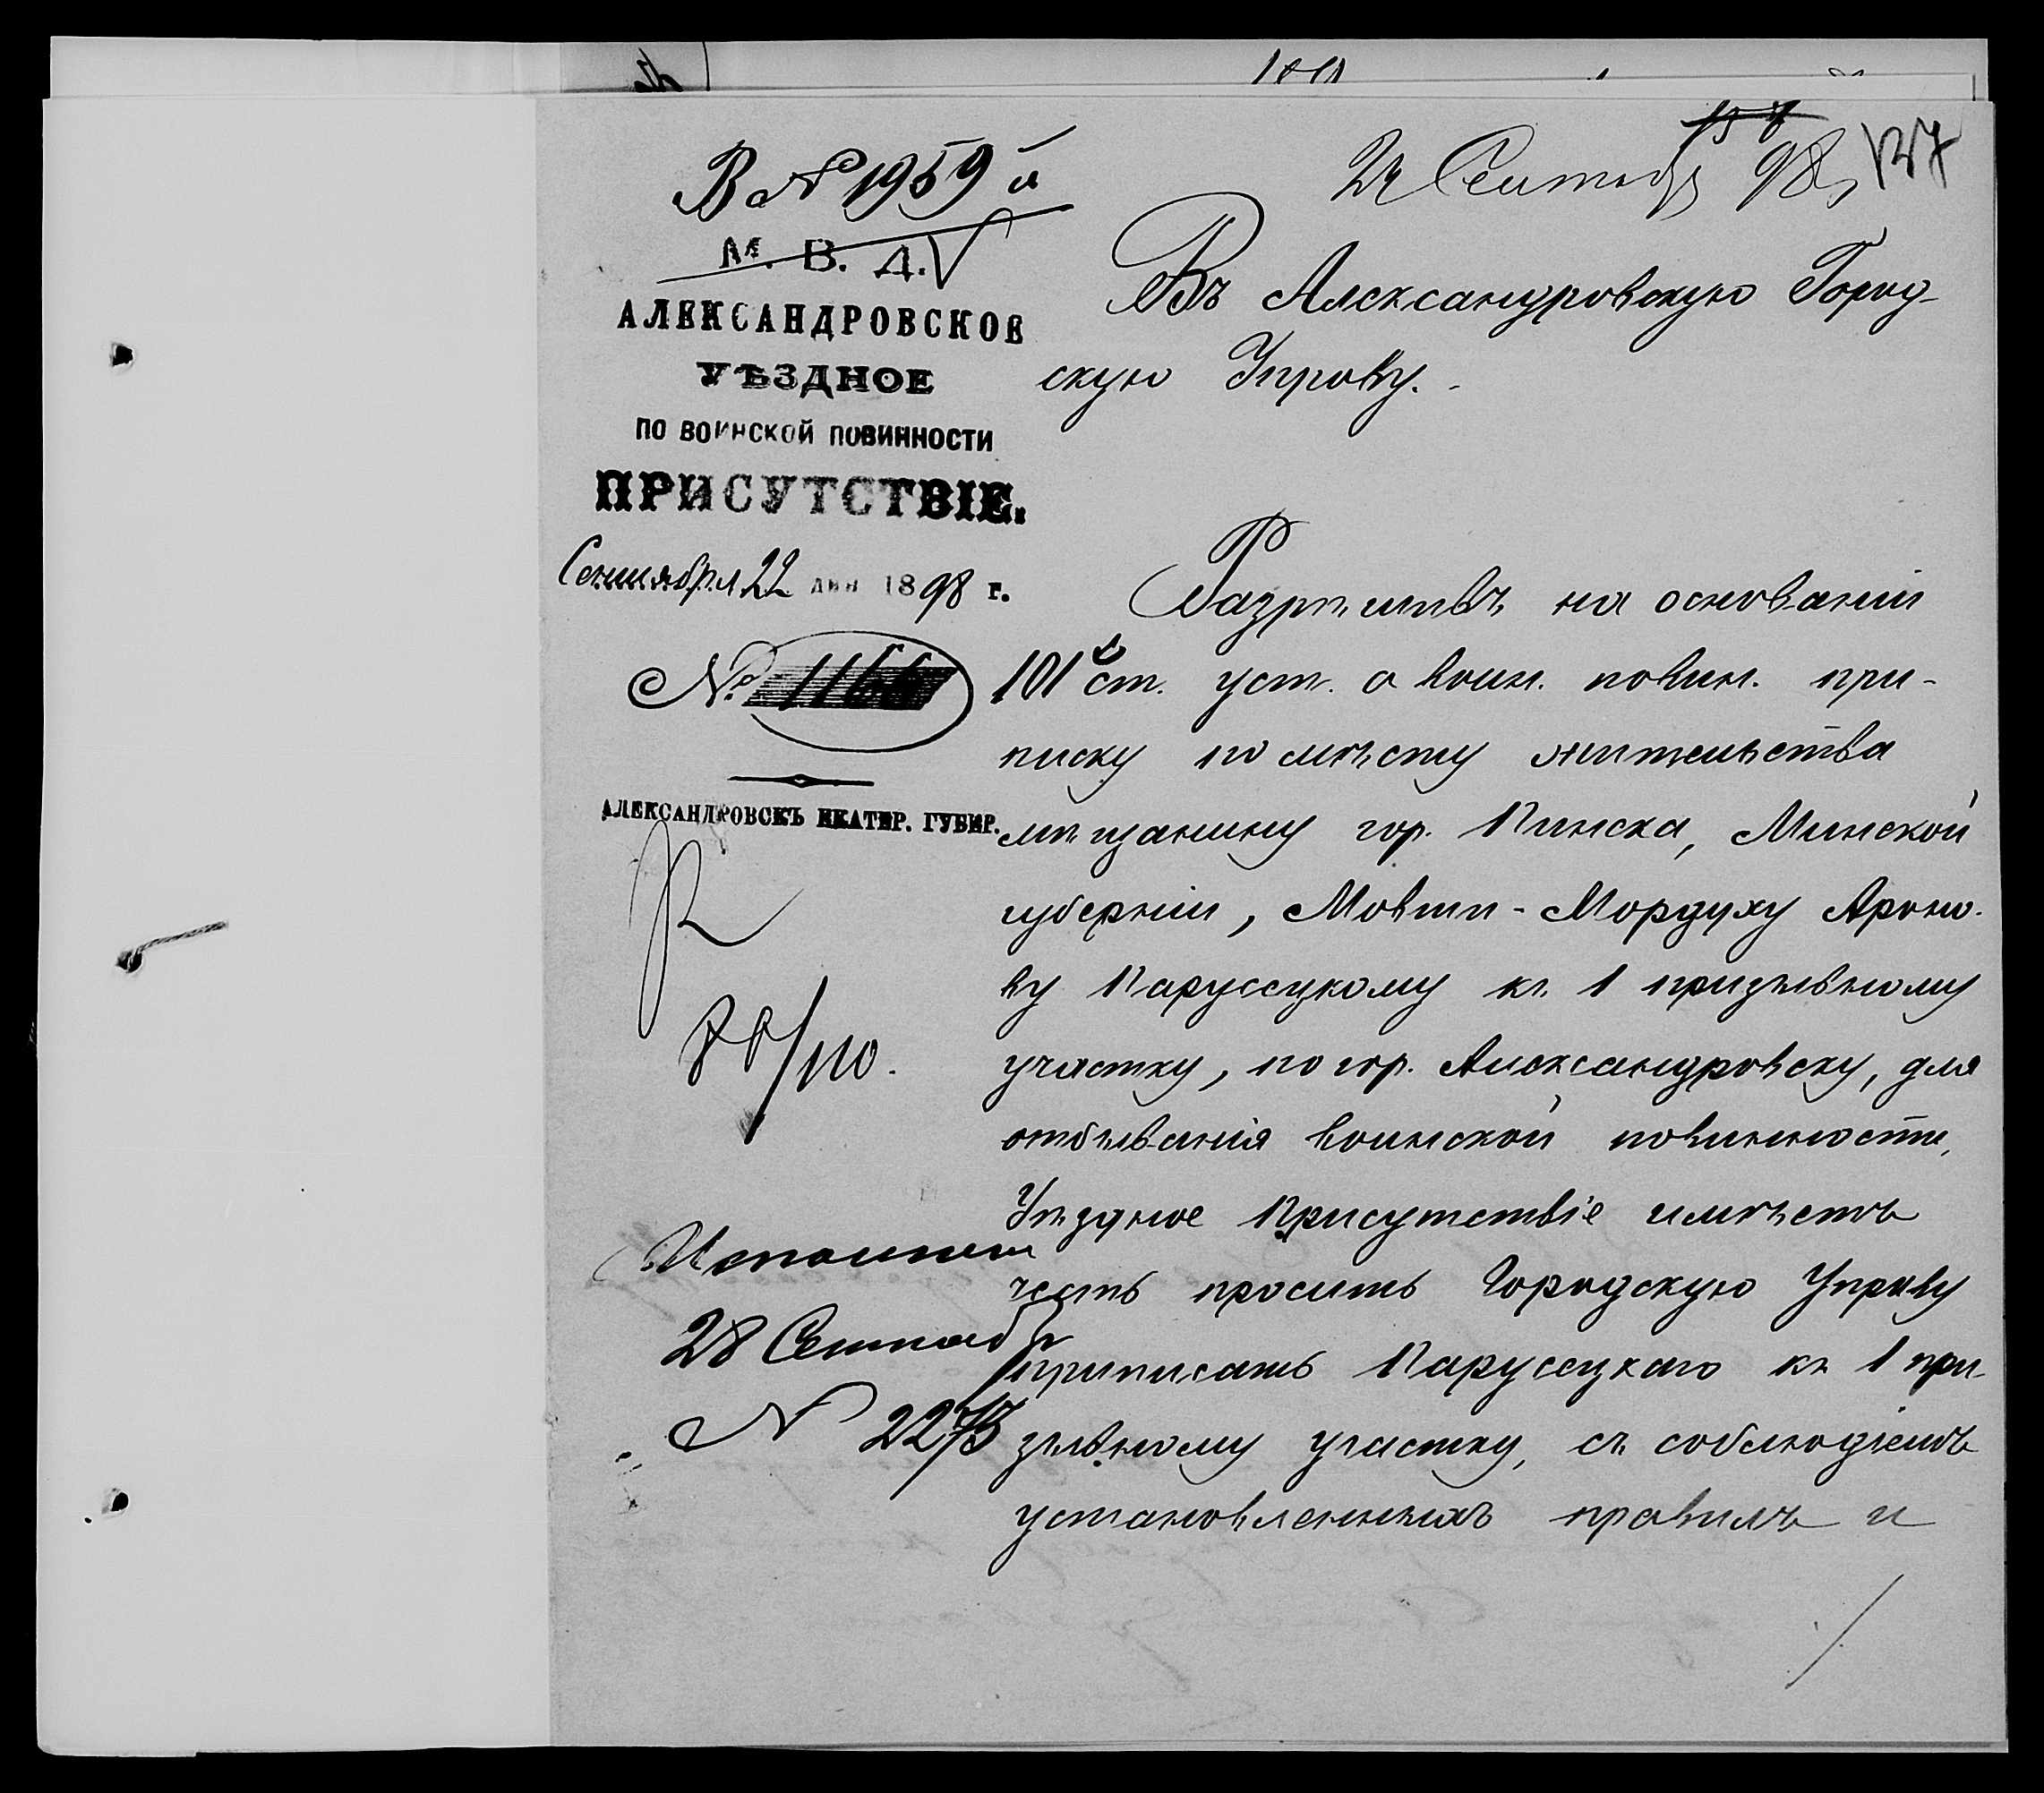 137
24 Сентябр 98 г.
В № 1959 й
М. В. Д.
АЛЕКСАНДРОВСКОЕ
УѢЗДНОЕ
ПО ВОИНСКОЙ ПОВИННОСТИ
ПРИСУТСТВІЕ.
Сентября 22 дня 1898 г.
№ 1166
АЛЕКСАНДРОВСКЪ ЕКАТЕР. ГУБЕР.
Исполнен
28 Сентяб
№ 2273
Въ Александровскую Город-
скую Управу.
Разрѣшивъ на основаніи
101 ст. уст. о воин. повин. при-
писку по мѣсту жительства
мѣщанину гор. Пинска, Минской
губерніи, Мовши-Мордуху Ароно-
ву Паруссцкому къ 1 призывному
участку, по гор. Александровску, для
отбыванія воинской повинности,
Уѣздное Присутствіе имѣетъ
честь просить Городскую Управу
приписать Паруссцкаго къ 1 при-
зывному участку, съ соблюдіемъ
установленныхъ правилъ и